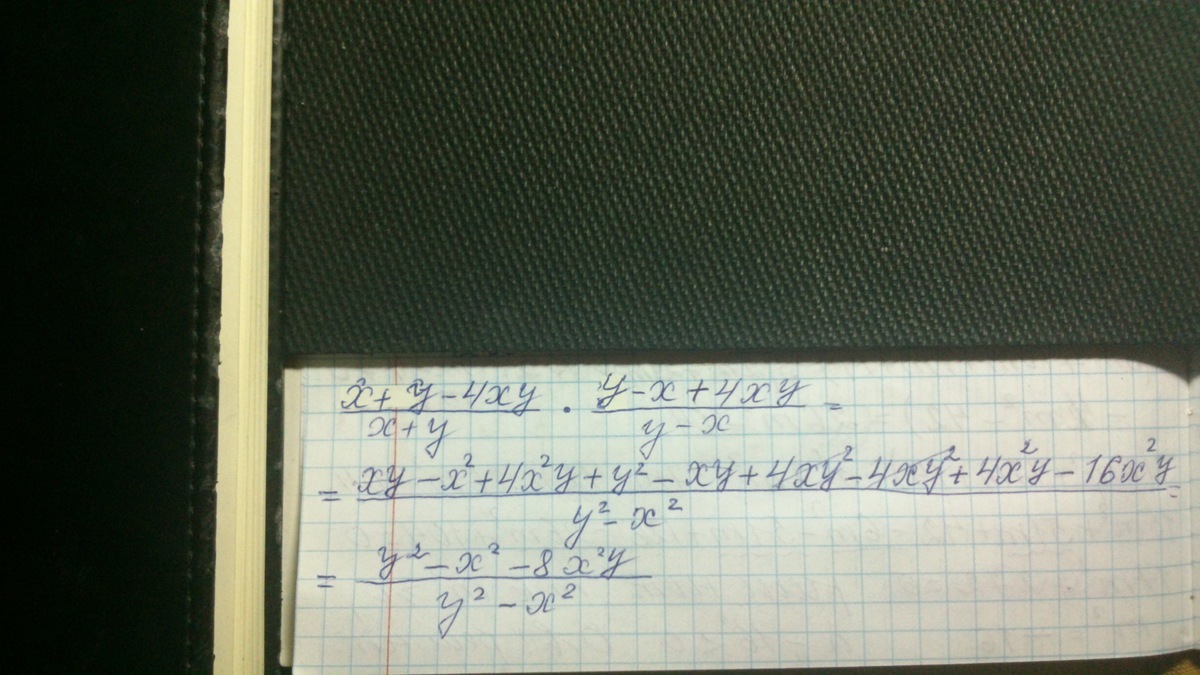 x + y - 4xy / x + y · y - x + 4xy / y - x =
= xy - x² + 4x²y + y² - xy + 4xy² - 4xy² + 4x²y - 16x²y / y² - x² =
= y² - x² - 8x²y / y² - x²